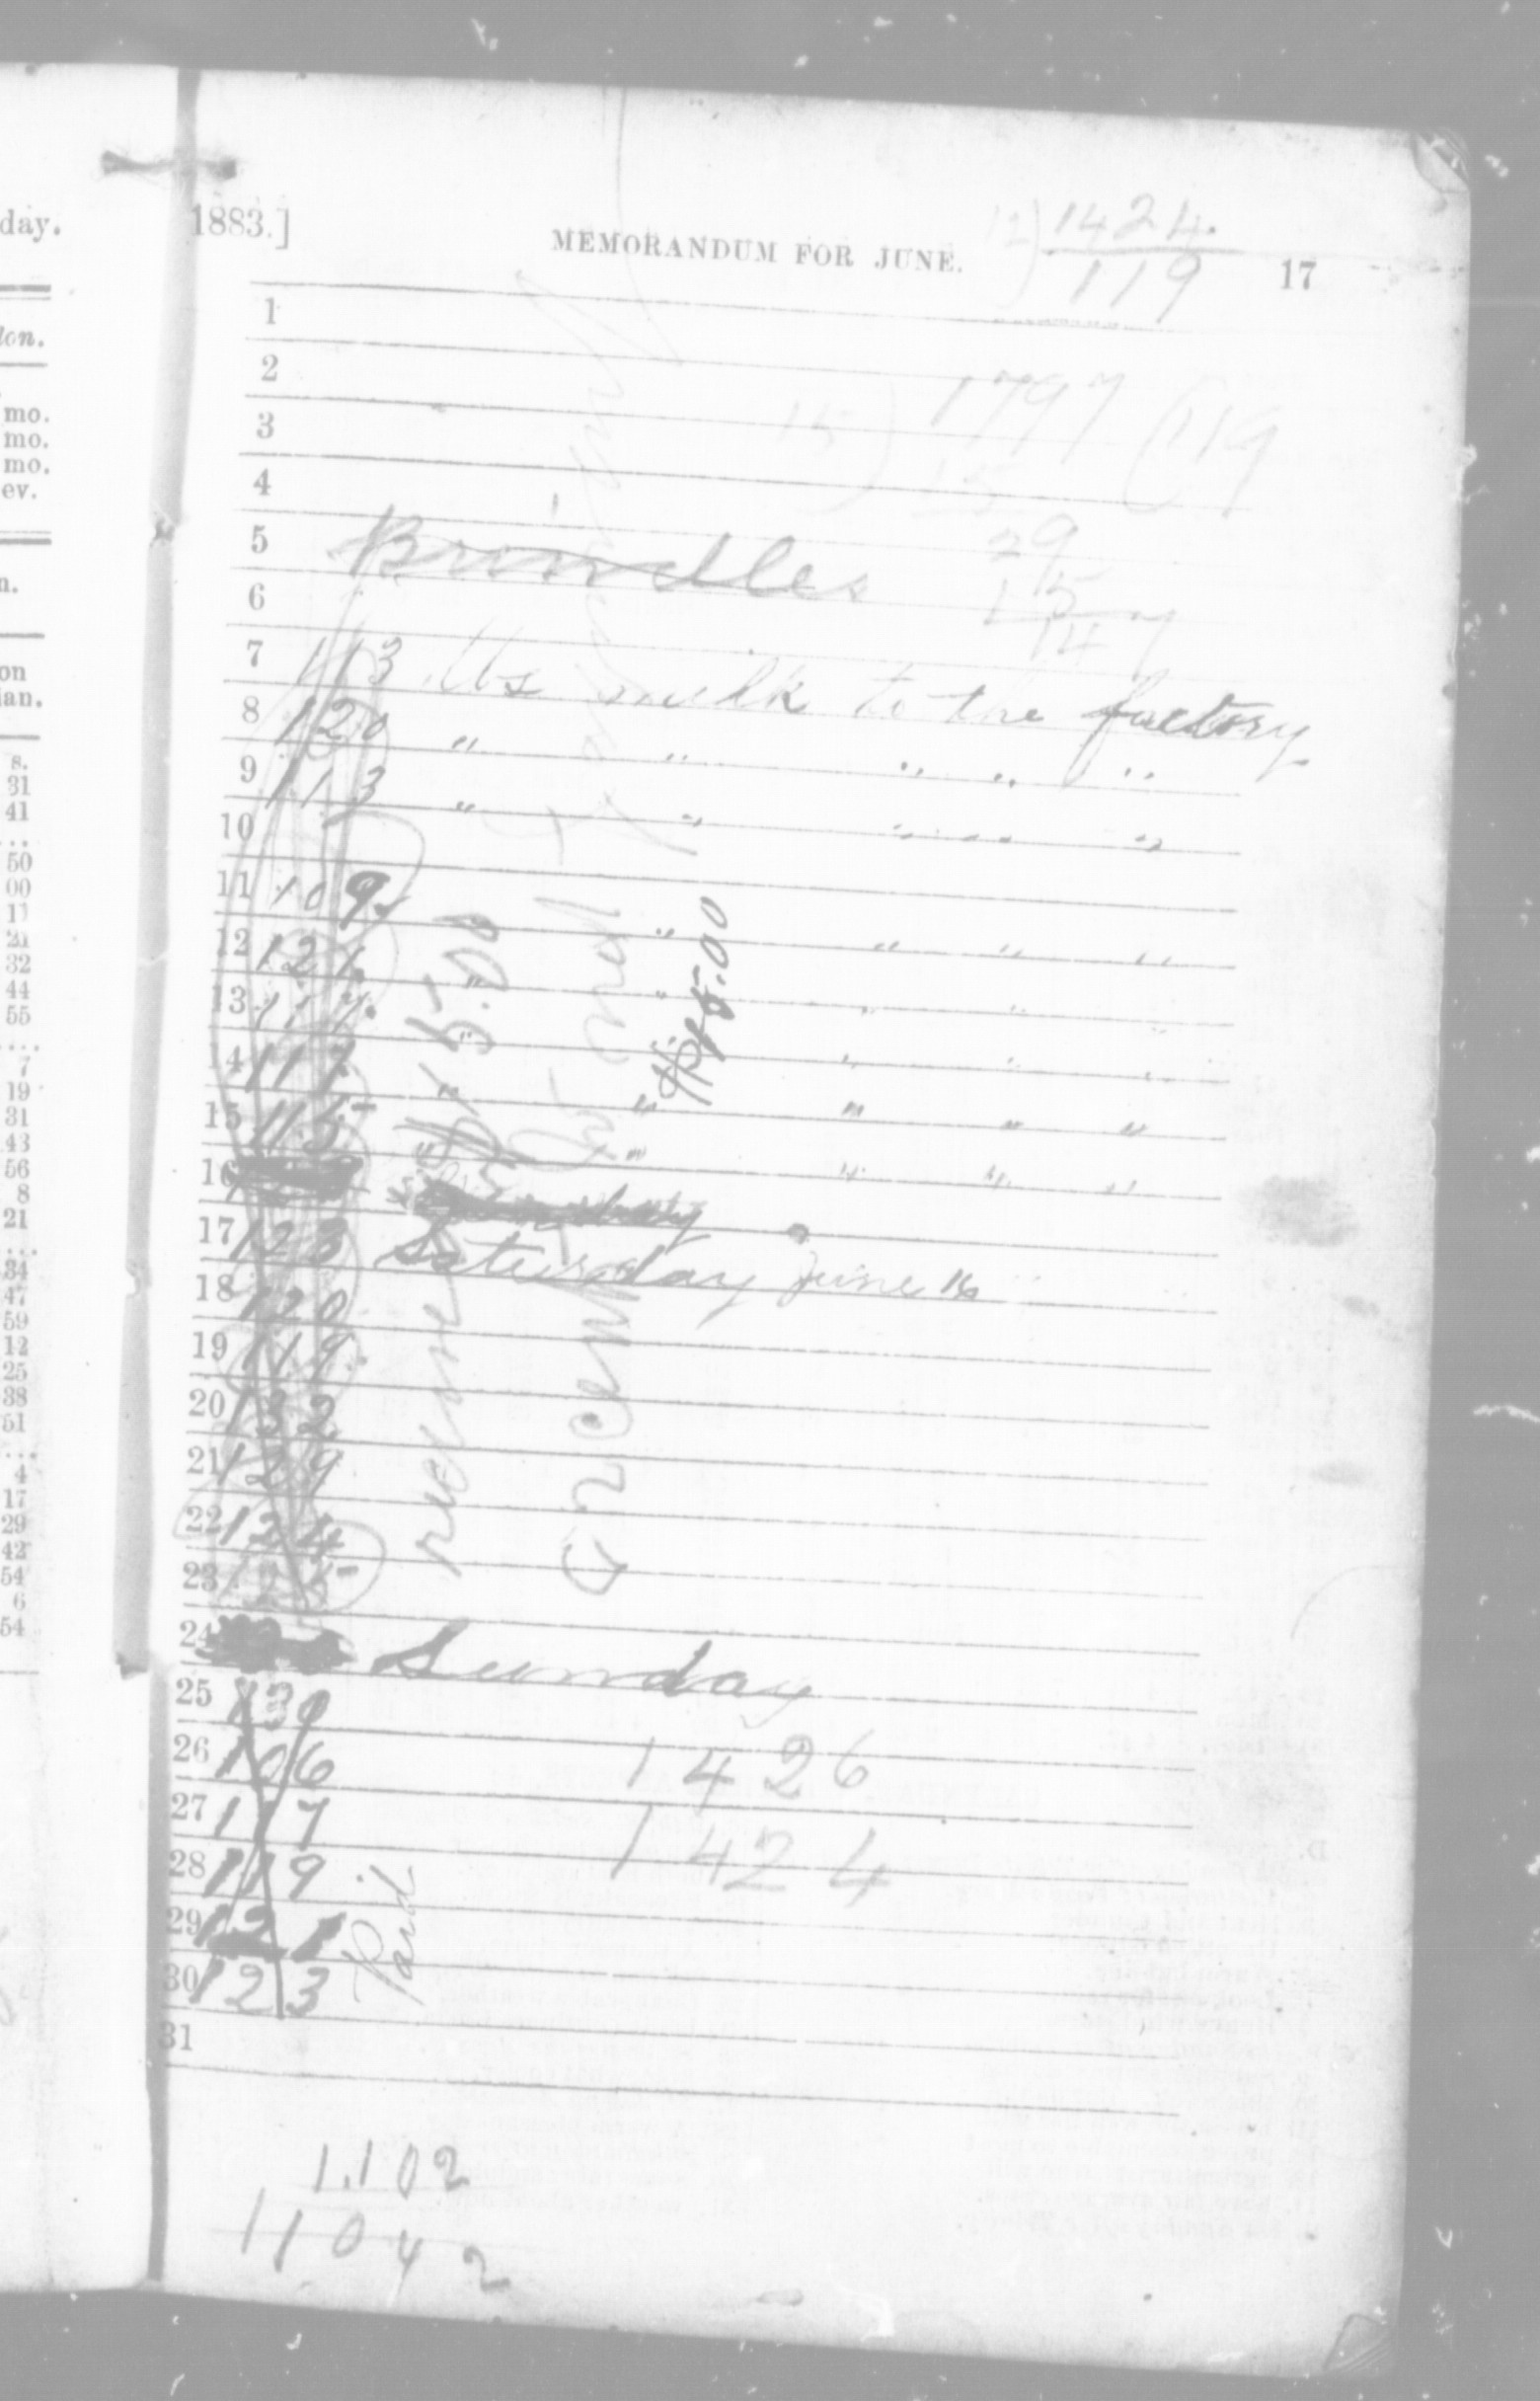 day.
1883.]
MEMORANDUM FOR JUNE.
12) 1424
119
17
15) 1797 (119
15
29
15
147
1
2
3
4
5 Brindles
6
7 113 lbs milk to the factory
8 120 " " " " "
9 113 " " " " "
10
11 109 " " " "
12 121 " " " " "
13 117 " " " " "
14 117 " " " " "
15 115 " " " " "
16
17 123 Saturday June 16
18 120
19 119
20 132
21 129
22 124
23
24 Sunday
25 130
26 106 1426
27 117 1424
28 119
29 121
30 123
31
Paid
$15.00
$15.00
1.102
11042
lon.
mo.
mo.
mo.
ev.
n.
on
ian.
s.
31
41
...
50
00
11
21
32
44
55
....
7
19
31
43
56
8
21
...
34
47
59
12
25
38
51
...
4
17
29
42
54
6
54